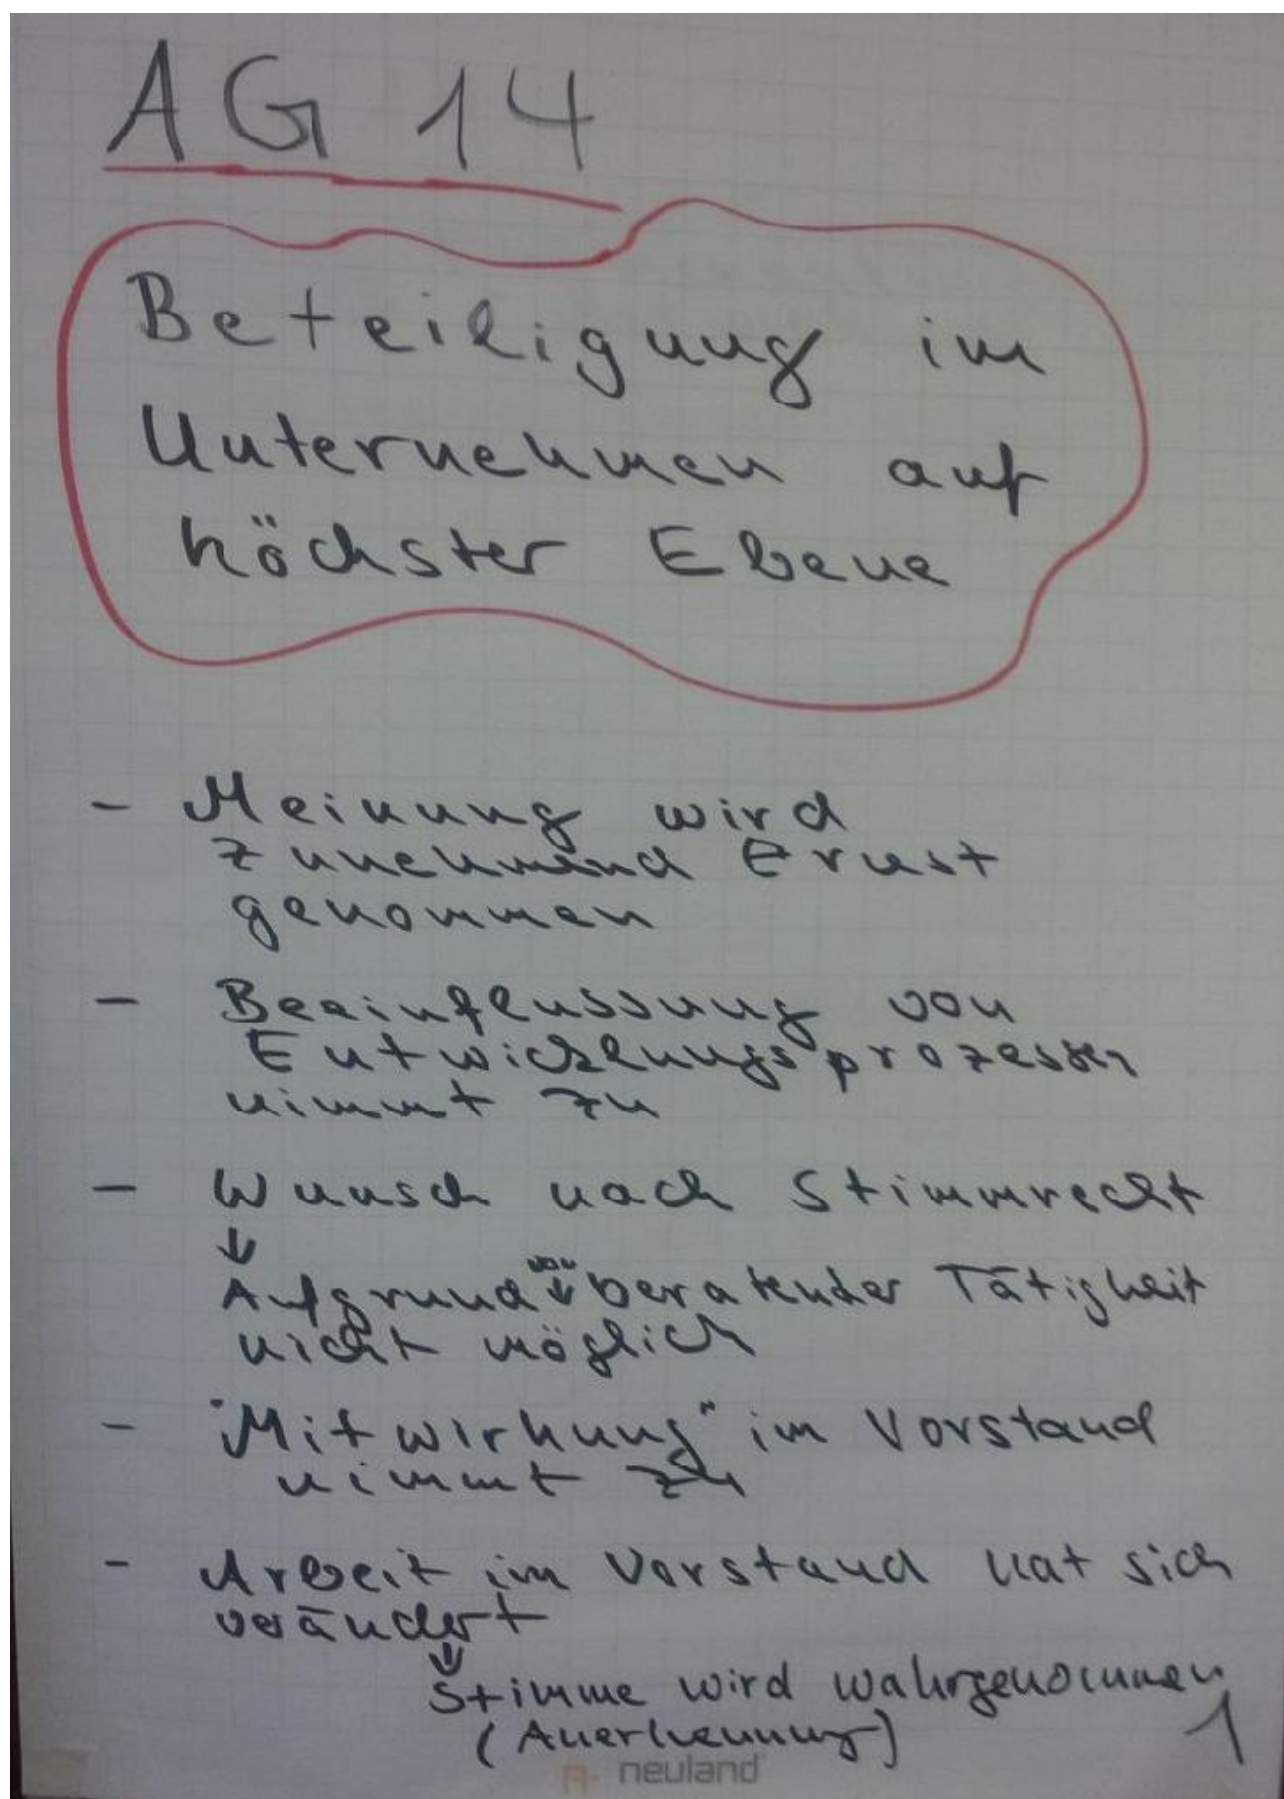 AG 14
Beteiligung im
Unternehmen auf
höchster Ebene
- Meinung wird
zunehmend Ernst
genommen
- Beeinflussung von
Entwicklungsprozessen
nimmt zu
- Wunsch nach Stimmrecht
↓
Aufgrund von ↓ beratender Tätigkeit
nicht möglich
- "Mitwirkung" im Vorstand
nimmt zu
- Arbeit im Vorstand hat sich
verändert
↓
Stimme wird wahrgenommen
(Anerkennung)
1
neuland